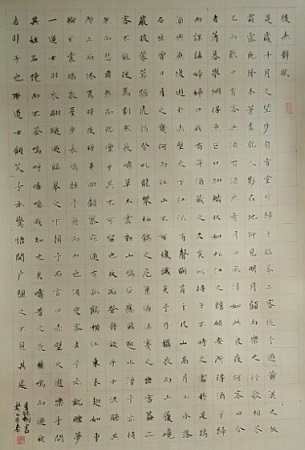 後赤壁賦
是歲十月之望步自雪堂將歸於臨皋二客從予過黃泥之坂
霜露既降木葉盡脫人影在地仰見明月顧而樂之行歌相答
已而歎曰有客無酒有酒無肴月白風清如此良夜何客曰今
者薄暮舉網得魚巨口細鱗狀如松江之鱸顧安所得酒乎歸
而謀諸婦婦曰我有斗酒藏之久矣以待子不時之需於是攜
酒與魚復遊於赤壁之下江流有聲斷岸千尺山高月小水落
石出曾日月之幾何而江山不可復識矣予乃攝衣而上履巉
巖披蒙茸踞虎豹登虬龍攀栖鶻之危巢俯馮夷之幽宮蓋二
客不能從焉劃然長嘯草木震動山鳴谷應風起水涌予亦悄
然而悲肅然而恐凜乎其不可留也反而登舟放乎中流聽其
所止而休焉時夜將半四顧寂寥適有孤鶴橫江東來翅如車
輪玄裳縞衣戛然長鳴掠予舟而西也須臾客去予亦就睡夢
一道士羽衣翩躚過臨皋之下揖予而言曰赤壁之遊樂乎問
其姓名俛而不答嗚呼噫嘻我知之矣疇昔之夜飛鳴而過我
者非子也耶道士顧笑予亦驚悟開戶視之不見其處